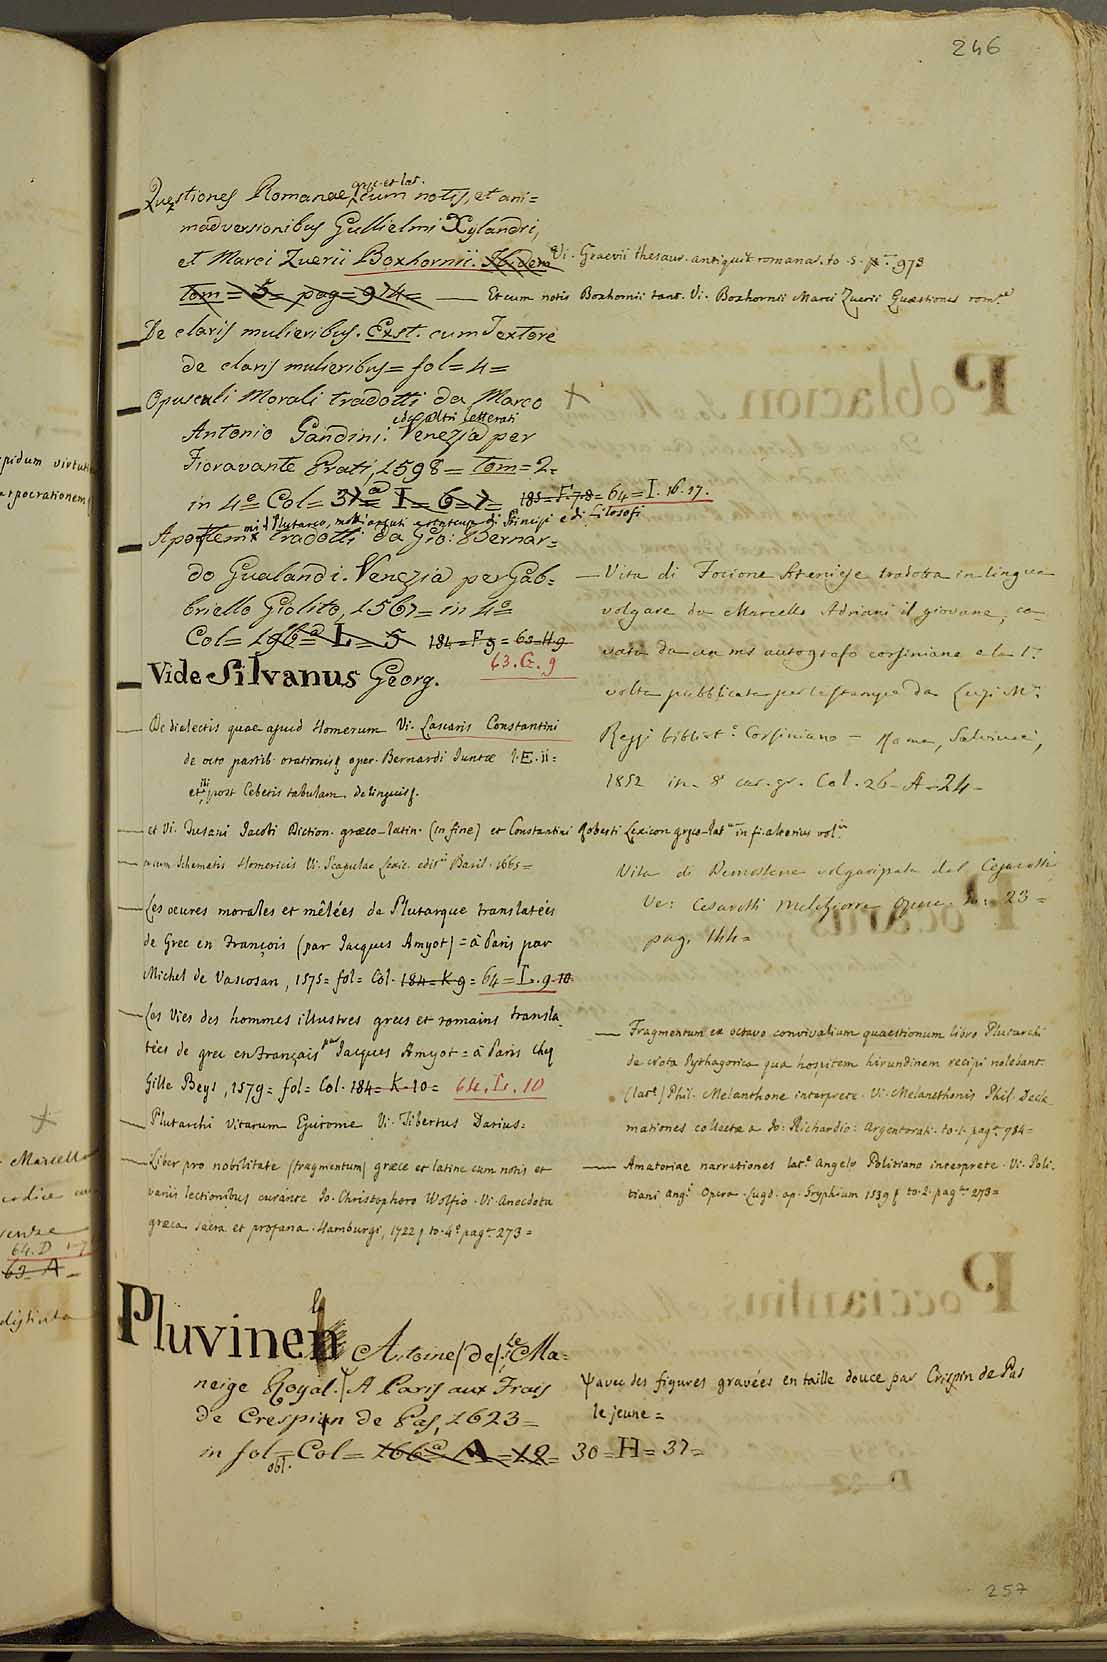 246
Quęstiones Romanae, gręc. et lat. cum notis, et ani=
madversionibus Gullielmi Xylandri,
et Marci Zuerii Boxhornii. Ibidem Vi. Graevii thesaur. antiquit romanar. to. 5. pag. 973
tom = 5 = pag = 974 = — Et cum notis Boxhornii tant. Vi. Boxhornii Marci Zuerii Quæstiones rom.ae
De claris mulieribus. Exst. cum Textore
de claris mulieribus = fol = 4 =
Opusculi Morali tradotti da Marco
Antonio Gandini: ed altri letterati Venezia per
Fioravante Prati, 1598 = tom = 2 =
in 4º Col = 37a = I = 6 = 7 = 183 = F. 7. 8 = 64 = I. 16. 17.
Apoftemmi di Plutarco, motti arguti di Principi e di Filosofi tradotti da Gio: Bernar=
do Gualandi. Venezia per Gab=
briello Giolito, 1567 = in 4º
Col = 196a = L = 5 184 = F 9 = 63 = H 9
63. G. 9
Vide Silvanus Georg.
De dialectis quae apud Homerum Vi. Lascaris Constantini
de octo partib. orationis oper. Bernardi Juntæ 1. E. ii =
et ibi post Cebetis tabulam de linguis.
et Vi. Tusani Jacobi Diction. græco-latin. (in fine) et Constantini Roberti Lexicon gręco-lat.m in fi. alterius vol.is
cum Schematis Homericis Vi. Scapulae Lexic. edit. Basil. 1665 =
Les oeuvres morales et mêlées de Plutarque translatées
de Grec en François (par Jacques Amyot) = à Paris par
Michel de Vascosan, 1575 = fol = Col. 184 = K 9 = 64 = L. 9. 10.
Les Vies des hommes illustres grecs et romains transla
tées de grec en Français par Jacques Amyot = à Paris chez
Gille Beys, 1579 = fol = Col. 184 = K. 10 = 64. L. 10
Plutarchi vitarum Epitome Vi. Tibertus Darius =
Liber pro nobilitate (fragmentum) græce et latine cum notis et
variis lectionibus curante Jo. Christophoro Wolfio. Vi. Anecdota
græca sacra et profana. Hamburgi, 1722, to. 4º pag. 273 =
— Vita di Focione Ateniese tradotta in lingua
volgare da Marcello Adriani il giovane, ca-
vata da un ms autografo corsiniano e la 1.a
volta pubblicata per le stampe da Luigi M.a
Rezzi bibliot.o Corsiniano — Roma, Salviucci,
1852 in-8 car. gr. Col. 26-A-24-
Vita di Demostene volgarizzata dal Cesarotti
Ve: Cesarotti Melchiorre Opere to: 23 =
pag. 144 =
— Fragmentum ex octavo convivalium quaestionum libro Plutarchi
de vota Pythagorica qua hospitem hirundinem recipi nolebant.
(lat.e) Phil. Melanthone interprete. Vi. Melancthonis Phil. Decla
mationes collectæ a Jo: Richardio: Argentorati. to. 1. pag. 984 =
— Amatoriae narrationes lat.e Angelo Politiano interprete. Vi. Poli.
tiani Ang.i Opera. Lugd. ap. Gryphium 1539, to. 2. pag. 273 =
Pluvinel Antoine (de) Le Ma=
neige Royal. A Paris aux Frais
de Crespin de Pas, 1623 =
in fol = obl. Col = 166a = A = 12 = 30 = H = 37 =
avec des figures gravées en taille douce par Crispin de Pas
le jeune =
257
pidum virtut
arpocrationem
Marcello
codice
64. D 1-7
63 = A =
distinta